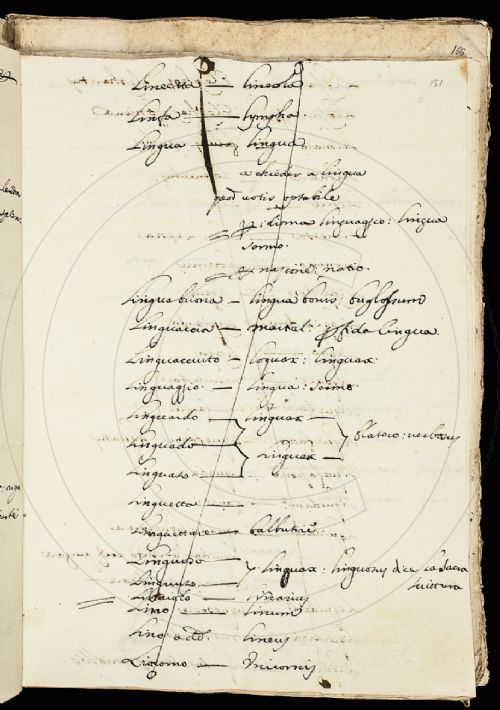 166
151
Lineetta — Lineola
Linfa — Lympha.
Lingua — Lingua
a chieder a lingua
quod votis optabile
idioma linguaggio: lingua
sermo.
nazione: natio.
Lingua buona — Lingua bonis: buglossum
Linguaccia — Martial: lingua
Linguacciuto — Loquax: linguax
Linguaggio — Lingua: sermo
Linguardo — Linguax —
Linguado — Linguax —
blatero: verbosus
Linguato
Linguetta —
Linguettare — balbutire
Linguoso — Linguax: linguosus dice la Sacra
Linguuto — scrittura
— linarius
Lino — Linum
Lino add. Lineus
Liocorno — Unicornis